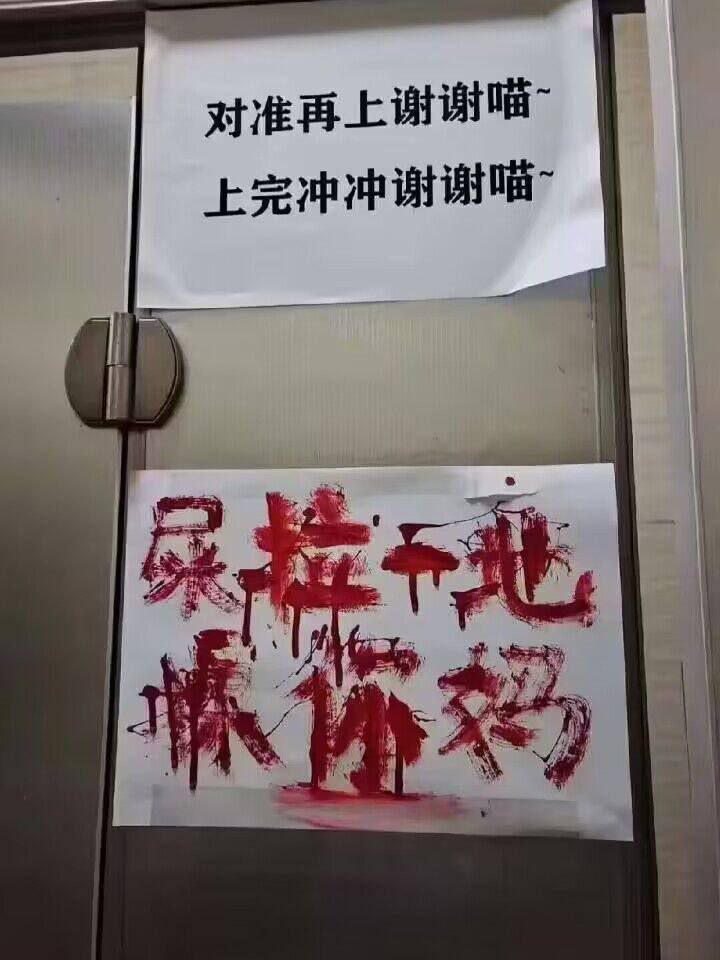 对准再上谢谢喵~
上完冲冲谢谢喵~
尿拉一地
你妈